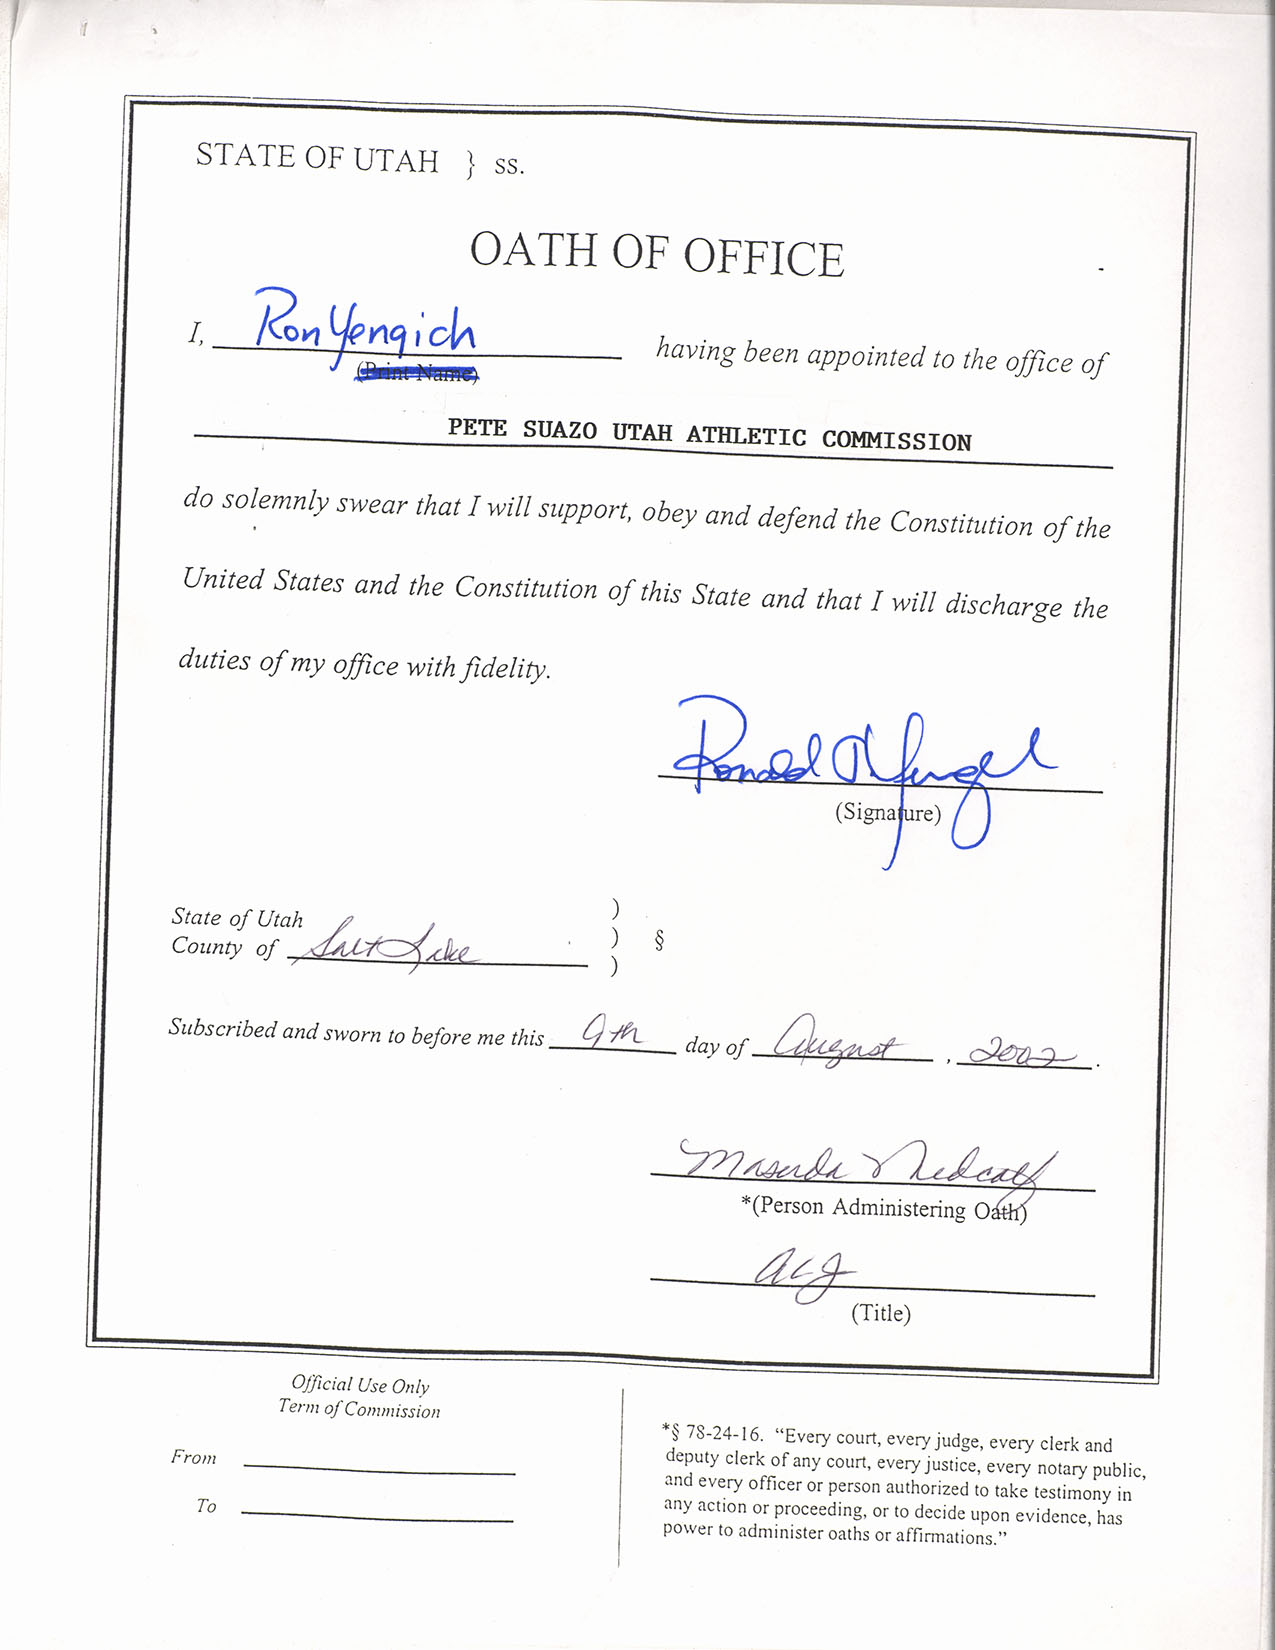 STATE OF UTAH } ss.
OATH OF OFFICE
I, Ron Yengich having been appointed to the office of
(Print Name)
PETE SUAZO UTAH ATHLETIC COMMISSION
do solemnly swear that I will support, obey and defend the Constitution of the
United States and the Constitution of this State and that I will discharge the
duties of my office with fidelity.
Ronald
(Signature)
State of Utah )
County of Salt Lake ) §
)
Subscribed and sworn to before me this 9th day of August , 2002 .
Medcalf
*(Person Administering Oath)
ALJ
(Title)
Official Use Only
Term of Commission
From
To
*§ 78-24-16. “Every court, every judge, every clerk and
deputy clerk of any court, every justice, every notary public,
and every officer or person authorized to take testimony in
any action or proceeding, or to decide upon evidence, has
power to administer oaths or affirmations.”